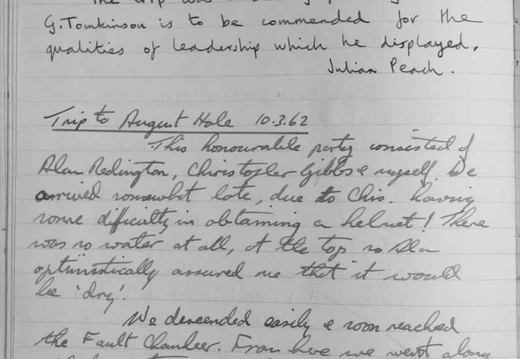 G. Tomkinson is to be commended for the
qualities of leadership which he displayed.
Julian Peach.
Trip to August Hole 10.3.62
This honourable party consisted of
Alan Redington, Christopher Gibbs & myself. We
arrived somewhat late, due to Chis. having
some dificulty in obtaining a helmet! There
was no water at all, at the top so Alan
optimistically assured me that it would
be 'dry'.
We descended easily & soon reached
the Fault Chamber. From here we went along